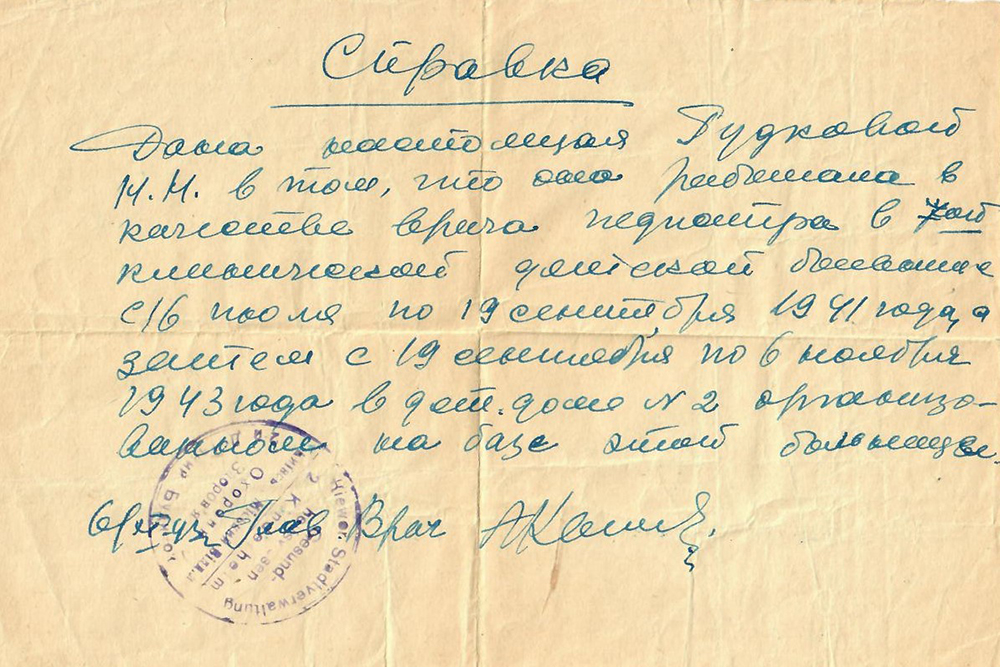 Справка
Дана настоящая Рудковой
Н.Н. в том, что она работала в
качестве врача педиатра в 7ой
клинической детской больнице
с 16 июля по 19 сентября 1941 года, а
затем с 19 сентября по 6 ноября
1943 года в дет. доме N 2 организо-
ванном на базе этой больницы.
Глав. Врач
Kiewer Stadtverwaltung
Gesund-
heim
Охорони